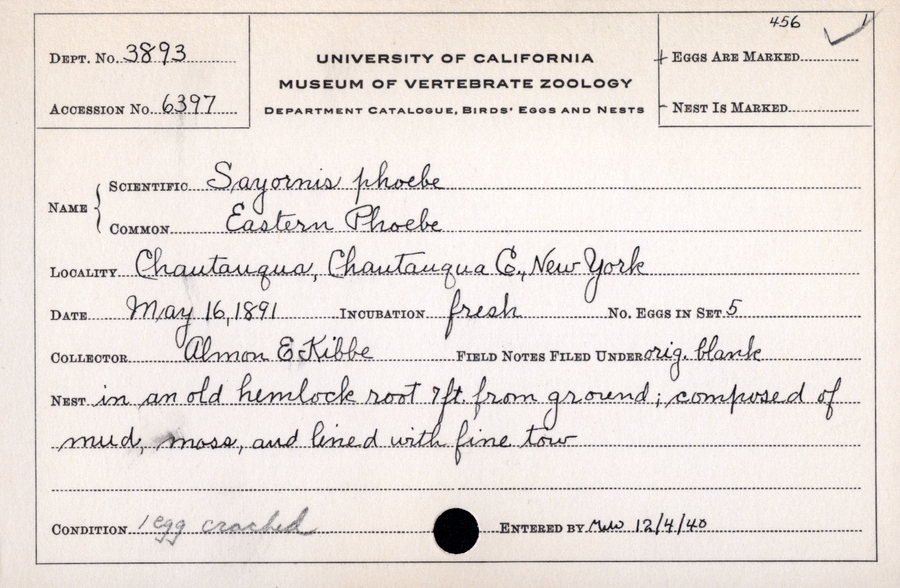 456 1
Dept. No. 3893
UNIVERSITY OF CALIFORNIA
+ Eggs Are Marked
MUSEUM OF VERTEBRATE ZOOLOGY
Accession No. 6397
Department Catalogue, Birds' Eggs and Nests
– Nest Is Marked
Name { Scientific Sayornis phoebe
Common Eastern Phoebe
Locality Chautauqua, Chautauqua C., New York
Date May 16, 1891 Incubation fresh No. Eggs in Set 5
Collector Almon E Kibbe Field Notes Filed Under orig. blank
Nest in an old hemlock root 7ft. from ground; composed of
mud, moss, and lined with fine tow
Condition 1 egg cracked Entered by 12/4/40